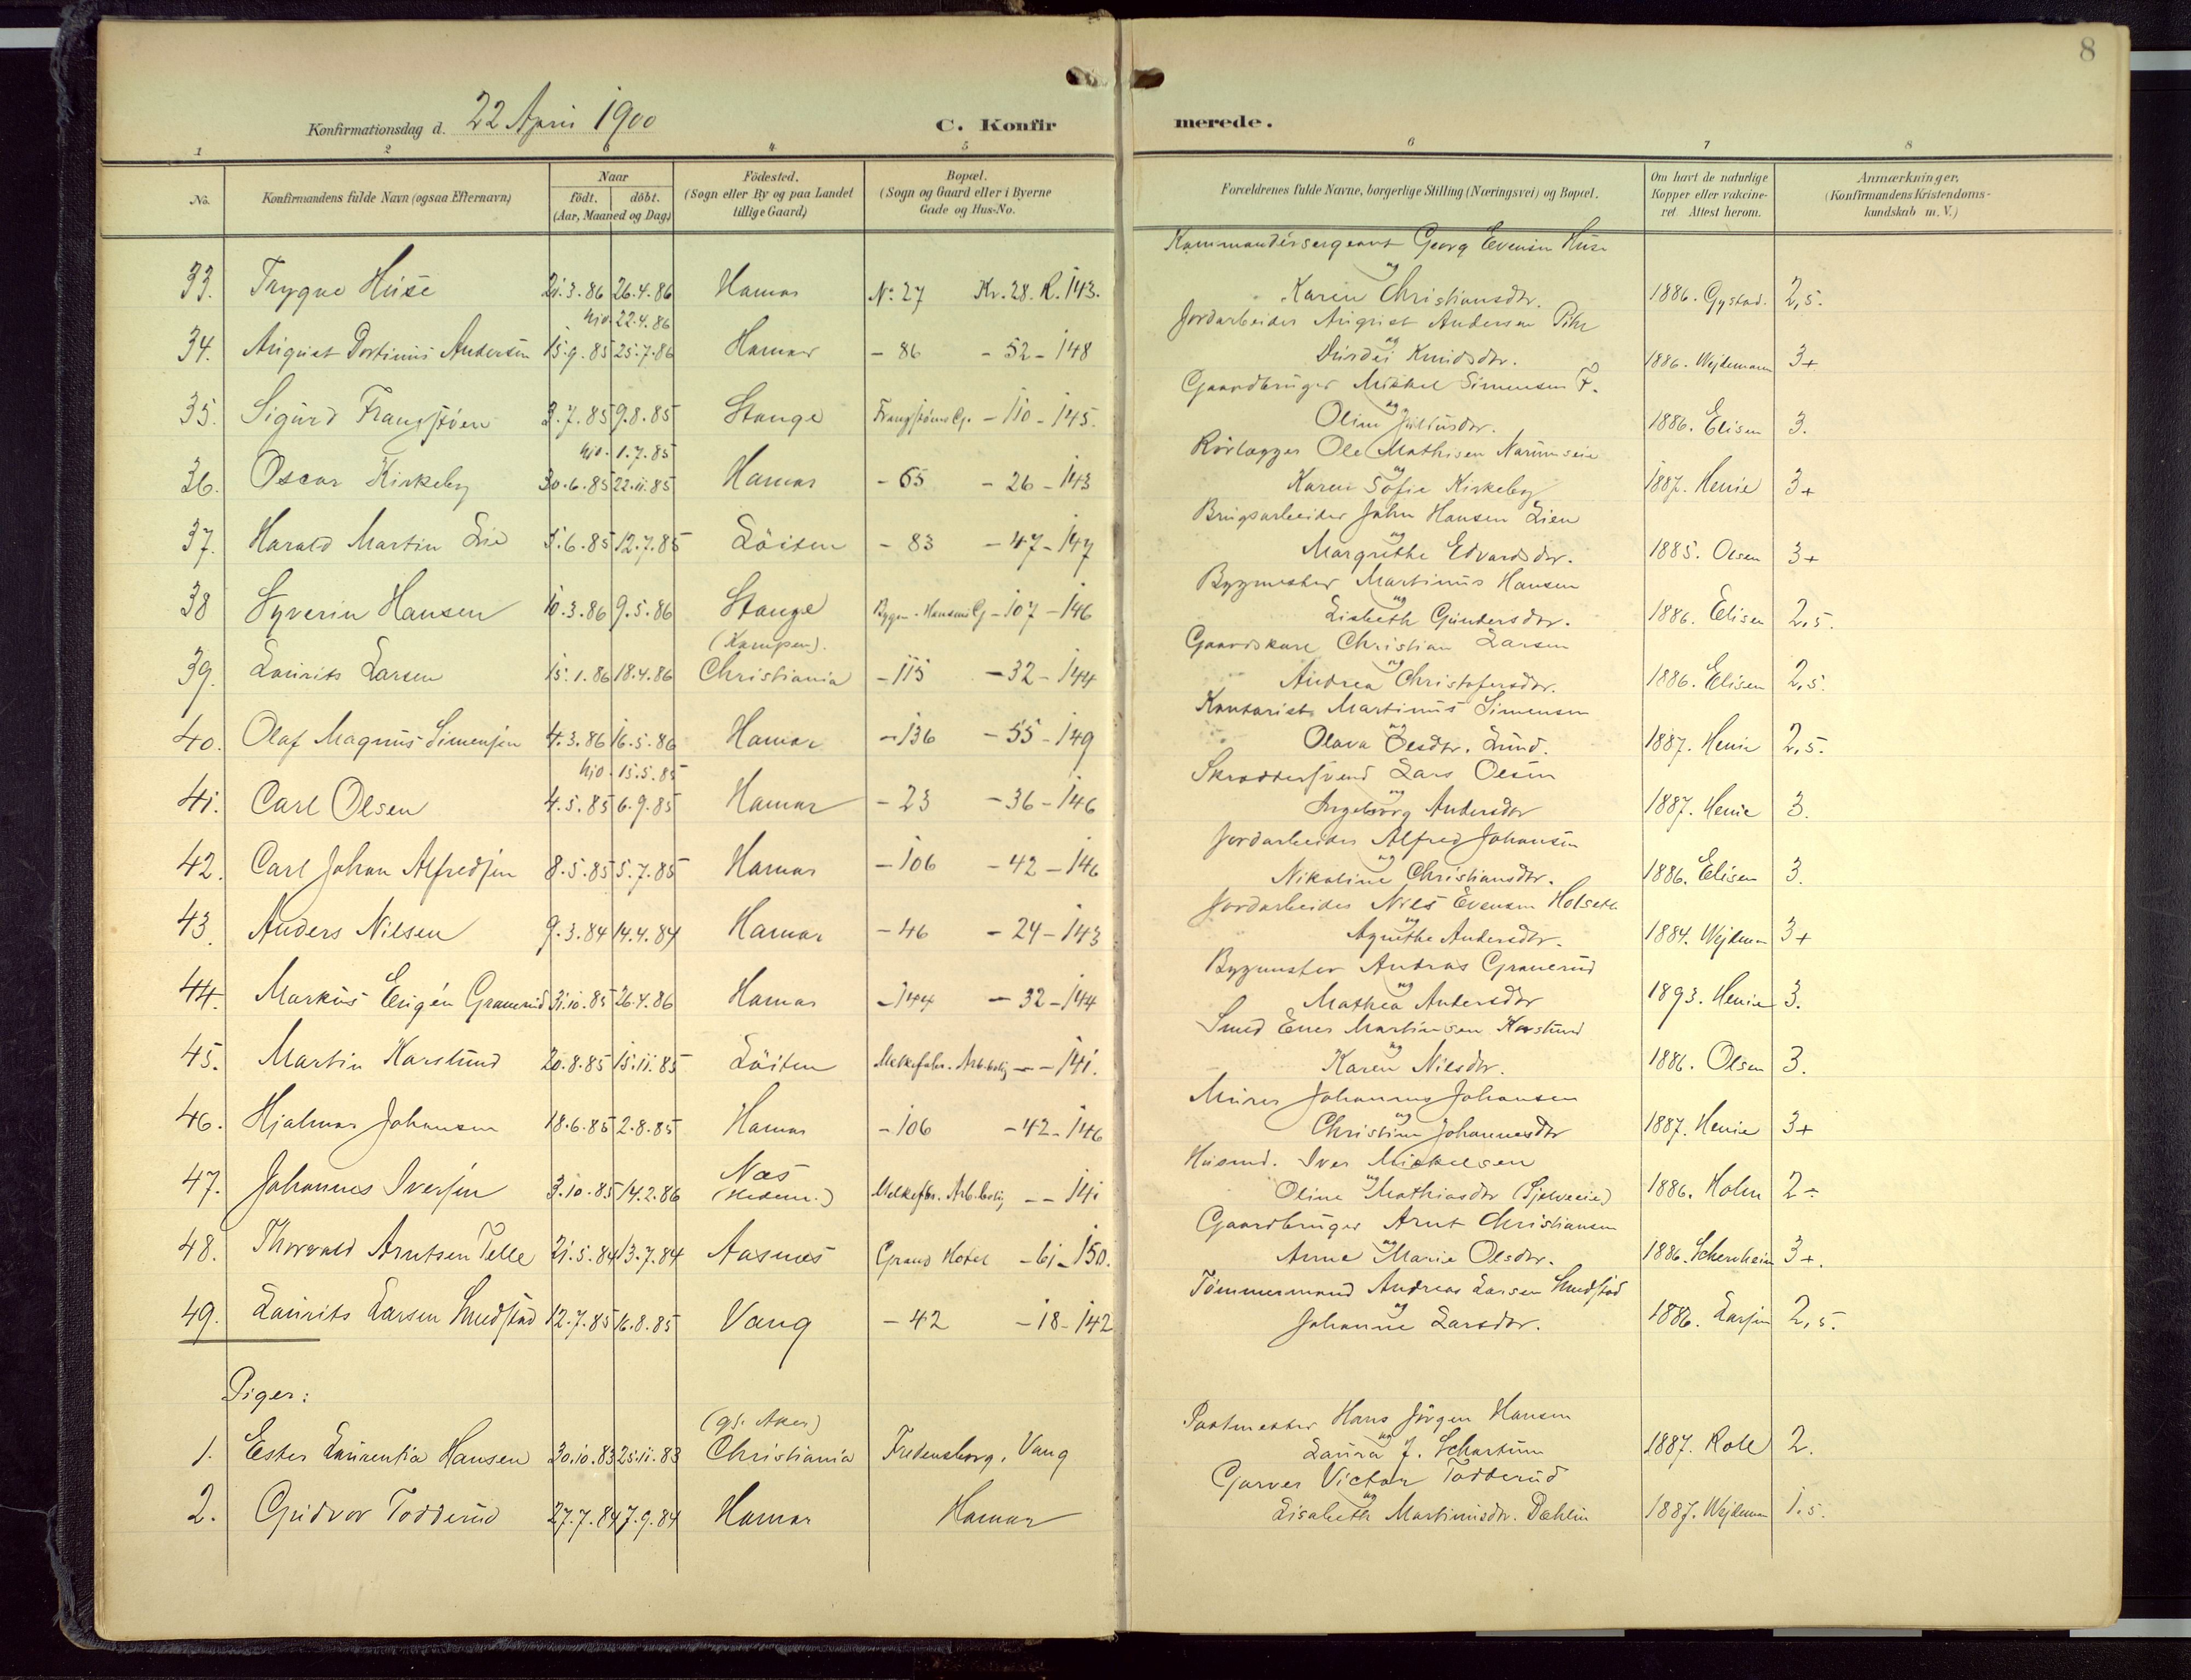 8
Konfirmationsdag d. 22 April 1900 C. Konfirmerede.
1 2 3 4 5 6 7 8
No. Konfirmandens fulde Navn (ogsaa Efternavn) Naar födt. döbt. (Aar, Maaned og Dag) Födested. (Sogn eller By og paa Landet tillige Gaard) Bopæl. (Sogn og Gaard eller i Byerne Gade og Hus-No. Forældrenes fulde Navne, borgerlige Stilling (Næringsvei) og Bopæl. Om havt de naturlige Kopper eller vakcineret. Attest herom. Anmærkninger. (Konfirmandens Kristendomskundskab m. V.)
Kommandérsergeant Georg Evensen Huse
33. Trygve Huse 21.3.86 26.4.86 Hamar No. 27 Kv. 28. R. 143. og Karen Christiansdtr. 1886. Gystad. 2,5.
hjd. 22.4.86 Jordarbeider August Andersen
34. August Dortinius Andersen 15.9.85 25.7.86 Hamar - 86 - 52 - 148 og Durdei Knudsdtr. 1886. Wejdemann 3+
Gaardbruger Mikkel Simensen F.
35. Sigurd Frangstøen 3.7.85 9.8.85 Stange - 110 - 145. og Oline Juliusdtr. 1886. Elisen 3.
hjd. 1.7.85 Rörlægger Ole Mathisen
36. Oscar Kirkeby 30.6.85 22.11.85 Hamar - 65 - 26 - 143 og Karen Sofie Kirkeby 1887. Henie 3+
Brugsarbeider John Hansen Lien
37. Harald Martin Lie 5.6.85 12.7.85 Löiten - 83 - 47 - 147 og Margrethe Edvardsdtr. 1885. Olsen 3+
Bygmester Martinius Hansen
38 Syverin Hansen 10.3.86 9.5.86 Stange Bygm. Hansens Gj - 107 - 146 og Lisbeth Gundersdtr. 1886. Elisen 2,5.
(Kampen). Gaardskarl Christian Larsen
39. Laurits Larsen 15.1.86 18.4.86 Christiania - 115 - 32 - 144 og Andrea Christofersdtr. 1886. Elisen 2,5.
Kontorist Martinius Simensen
40. Olaf Magnus Simensen 4.3.86 16.5.86 Hamar - 136 - 55 - 149 og Olava Olsdtr. Lund. 1887. Henie 2,5.
hjd. 15.5.85 Skræddersvend Lars Olsen
41. Carl Olsen 4.5.85 6.9.85 Hamar - 23 - 36 - 146 og Ingeborg Andersdtr 1887. Henie 3.
Jordarbeider Alfred Johansen
42. Carl Johan Alfredsen 8.5.85 5.7.85 Hamar - 106 - 42 - 146 og Nikoline Christiansdtr. 1886. Elisen 3.
Jordarbeider Nils Evensen Holseth
43. Anders Nilsen 9.3.84 14.4.84 Hamar - 46 - 24 - 143 og Agnethe Andersdtr. 1884. Wejdeman 3+
Bygmester Andreas Granerud
44. Markus Eugén Granerud 31.10.85 26.4.86 Hamar - 144 - 32 - 144 og Mathea Andersdtr 1893. Henie 3.
Smed Ener Martinsen Karslund
45. Martin Karslund 20.8.85 15.11.85 Löiten Melkefabr. Arb.bolig - - 141. og Karen Nilsdtr. 1886. Olsen 3.
Murer Johannes Johansen
46. Hjalmar Johansen 18.6.85 2.8.85 Hamar - 106 - 42 - 146 og Christine Johannesdtr 1887. Henie 3+
Husmd. Iver Mickelsen
47. Johannes Iversen 3.10.85 14.2.86 Næs (Hedem.) Melkefbr. Arb.bolig - - 141 og Oline Mathiasdtr (Sjelveeie) 1886. Holm 2÷
Gaardbruger Arnt Christiansen
48. Thorvald Arntsen Telle 21.5.84 13.7.84 Aasnes Grand Hotel - 61 - 150. og Anne Marie Olsdtr. 1886. Scharnhein 3+.
Tömmermand Andreas Larsen Smedstad
49. Laurits Larsen Smedstad 12.7.85 16.8.85 Vang - 42 - 18 - 142 og Johanne Larsdtr. 1886. Larsen 2,5.
Piger:
(gl. Aker) Postmester Hans Jörgen Hansen
1. Ester Laurentia Hansen 30.10.83 25.11.83 Christiania Fredensborg, Vang og Laura J. Schartum 1887. Roll 2.
Garver Victor Todderud
2. Gudvor Todderud 27.7.84 7.9.84 Hamar Hamar og Lisabeth Martinusdtr. Dæhlin 1887. Wejdeman 1.5.